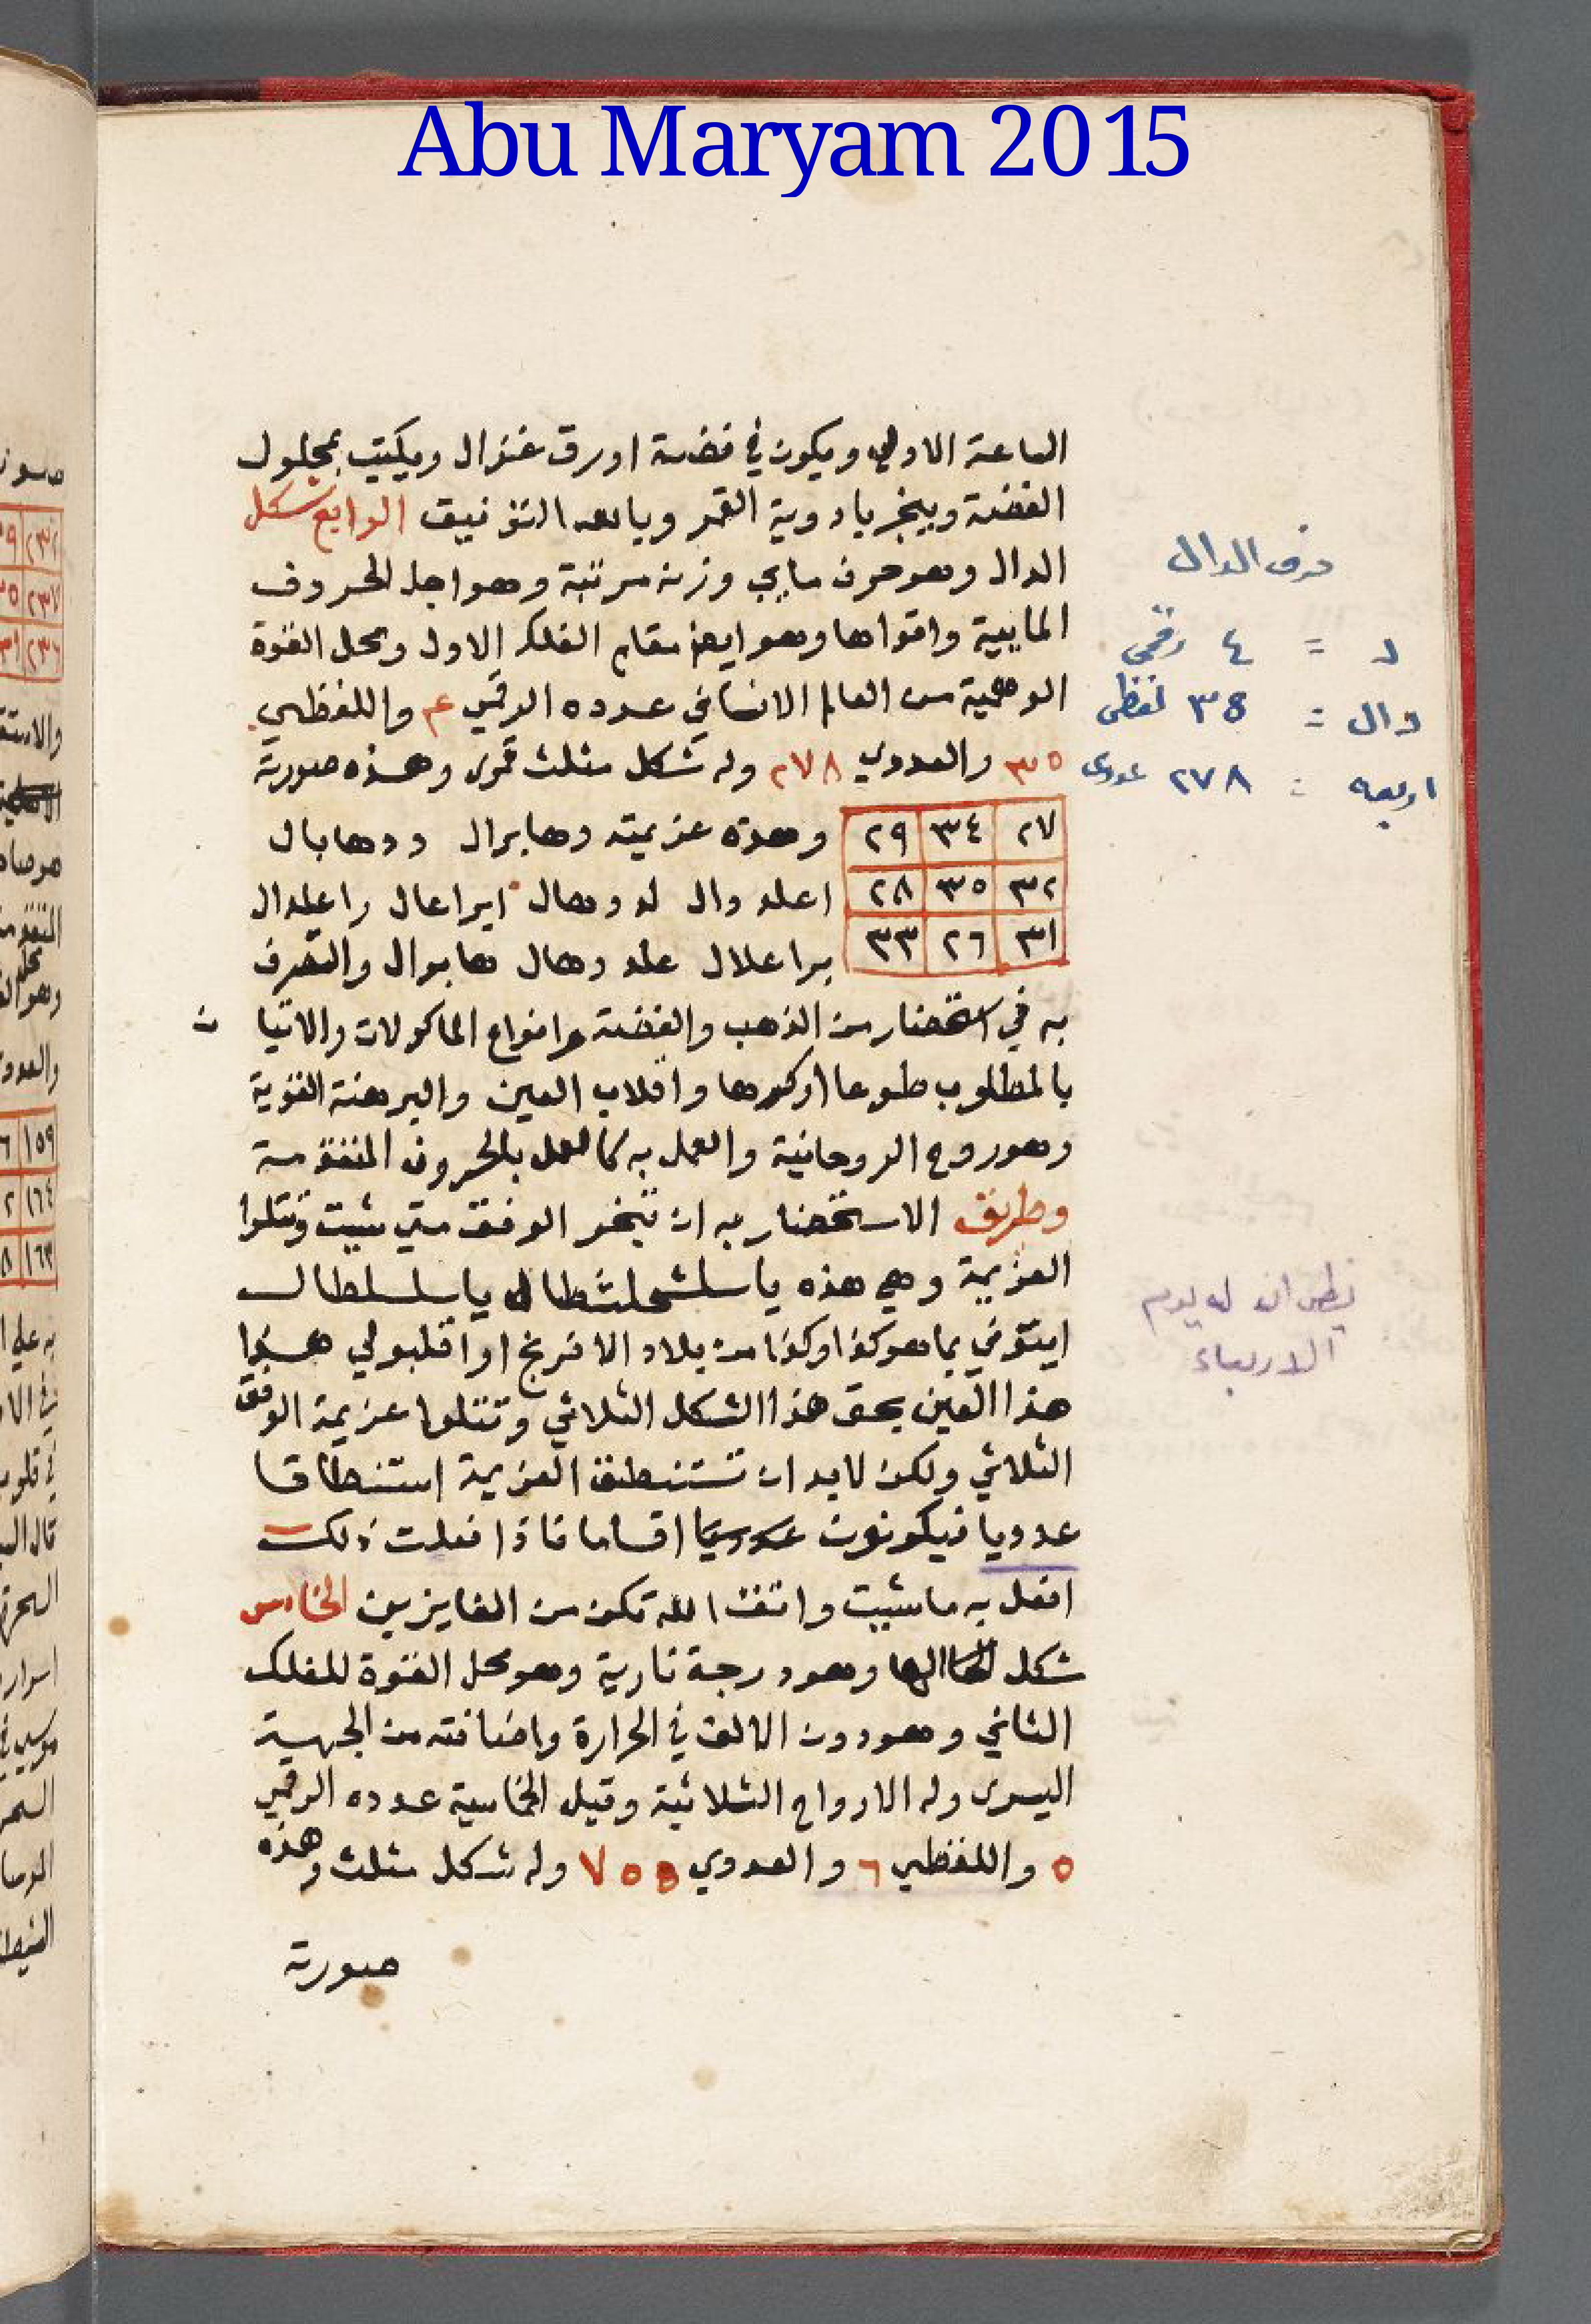 Abu Maryam 2015
الساعة الاولي ويكون في فضة او رق غزال ويكتب بمحلول
الفضة ويبخر بادوية القمر وبالله التوفيق الرابع شكل
الدال وهو حرف مايي وزنه مرتبة وهو اجل الحروف
المايية واقواها وهو ايضا مقام الفلك الاول ومحل القوة
الوهمية من العالم الانساني عدده الرقمي ٤ واللفظي
٣٥ والعددي ٢٧٨ وله شكل مثلث قمرى وهذه صورته
٢٧ ٣٤ ٢٩
٣٢ ٣٥ ٢٨
٣١ ٢٦ ٣٣
وهذه عزيمته دهابرال ددهابال
اعلد دال لد دهال ايراعال راعلدال
براعلال علد دهال هابوال والتصرف
به في استحضار من الذهب والفضة وانواع الماكولات والاتيا
ن
بالمطلوب طوعا او كرها واقلاب العين والبرهنة القوية
وهو روح الروحانية والعمل به كالعمل بالحروف المتقدمة
وطريق الاستحضار به ان تبخر الوفق متي شيت وتتلوا
العزيمة وهي هذه يا سلشحلشطال يا سلسلطال
ايتوني بما هو كذا وكذا من بلاد الافرنج او اقلبولي هذا
هذا العين بحق هذا الشكل الثلاثي وتتلوا عزيمة الوفق
الثلاثي ولكن لابد ان تستنطق العزيمة استنطاقا
عدديا فيكونون اقساما فاذا فعلت ذلك
افعل به ما شيت واتق الله تكن من الفايزين الخامس
شكل الها وهو درجة نارية وهو محل القوة للفلك
الثاني وهو دون الالف في الحرارة واضافته من الجهية
اليسرى وله الارواح الثلاثية وقيل الخماسية عدده الرقمي
٥ واللفظي ٦ والعددي ٧٥٥ وله شكل مثلث وهذه
صورته
حرف الدال
د = ٤ رقمي
دال = ٣٥ لفظى
اربعه = ٢٧٨ عددى
يظهر انه له يوم
الاربعاء